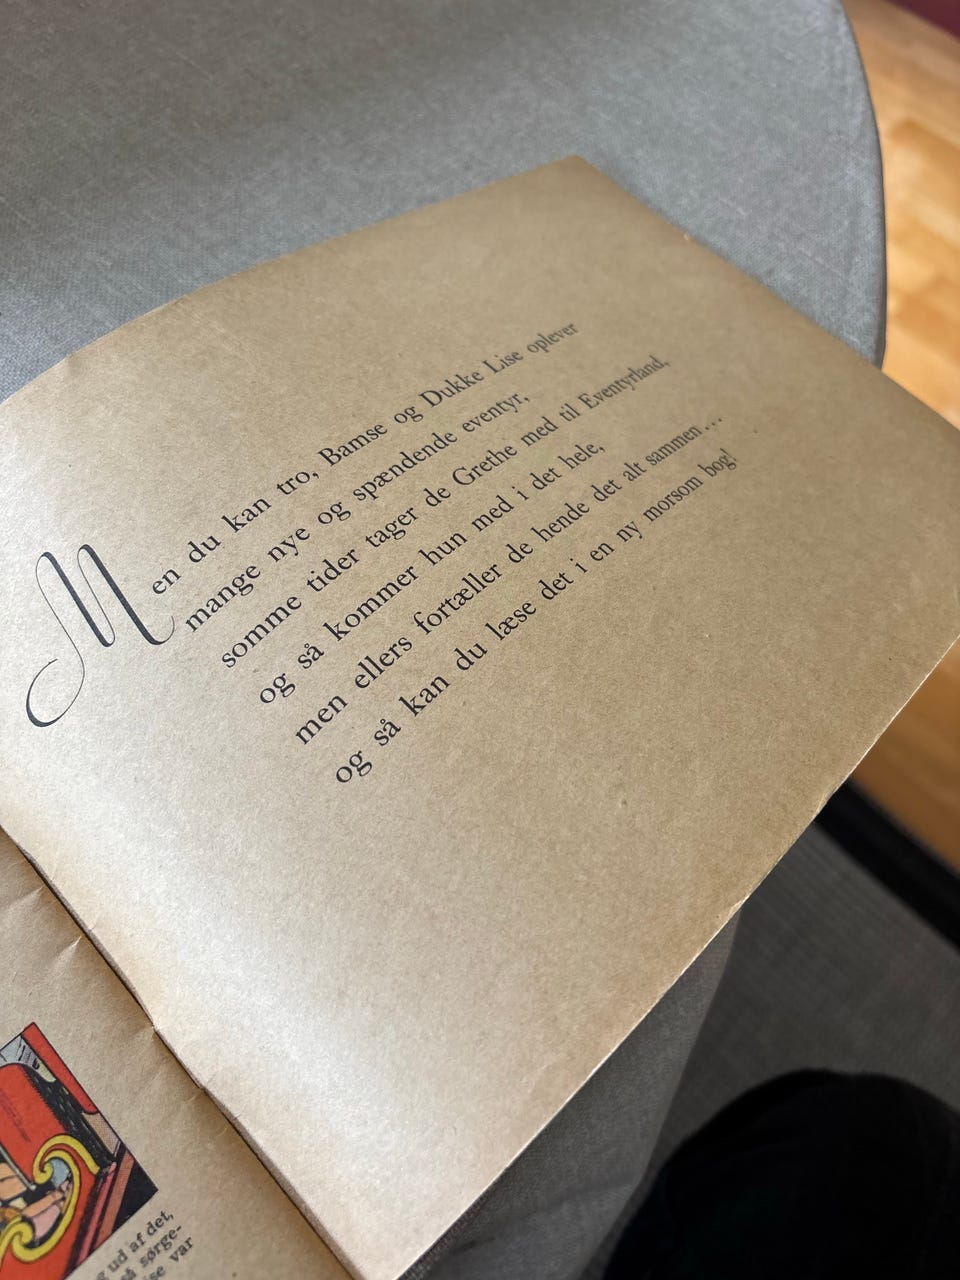 Men du kan tro, Bamse og Dukke Lise oplever
mange nye og spændende eventyr,
somme tider tager de Grethe med til Eventyrland,
og så kommer hun med i det hele,
men ellers fortæller de hende det alt sammen...
og så kan du læse det i en ny morsom bog!
ud af det,
så sørge-
var